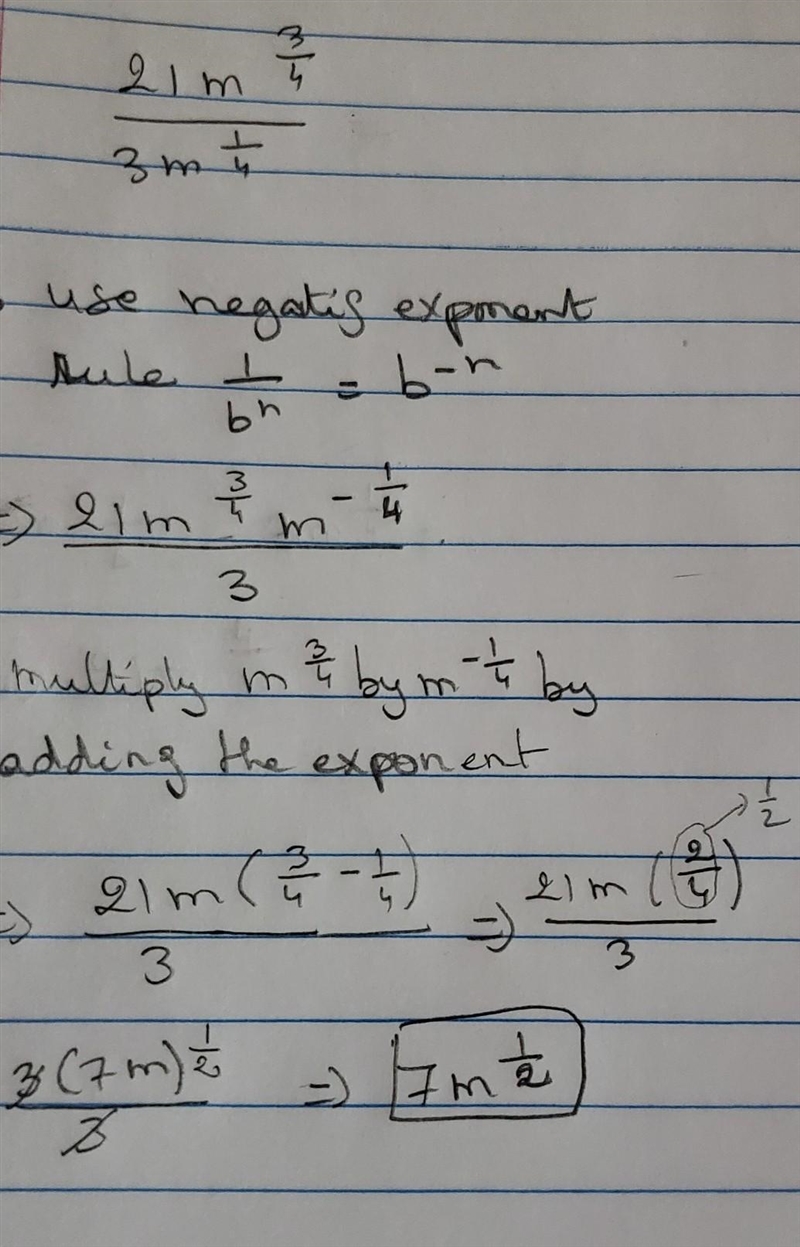 21 m^(3/4)
———
3 m^(1/4)
use negatis exponent
Rule 1/b^n = b^-n
=> 21 m^(3/4) m^(-1/4)
———
3
multiply m^(3/4) by m^(-1/4) by
adding the exponent
=> 21 m (3/4 - 1/4) / 3 => 21 m (2/4) / 3 → 1/2
3 (7m)^(1/2) / 3 => 7 m^(1/2)